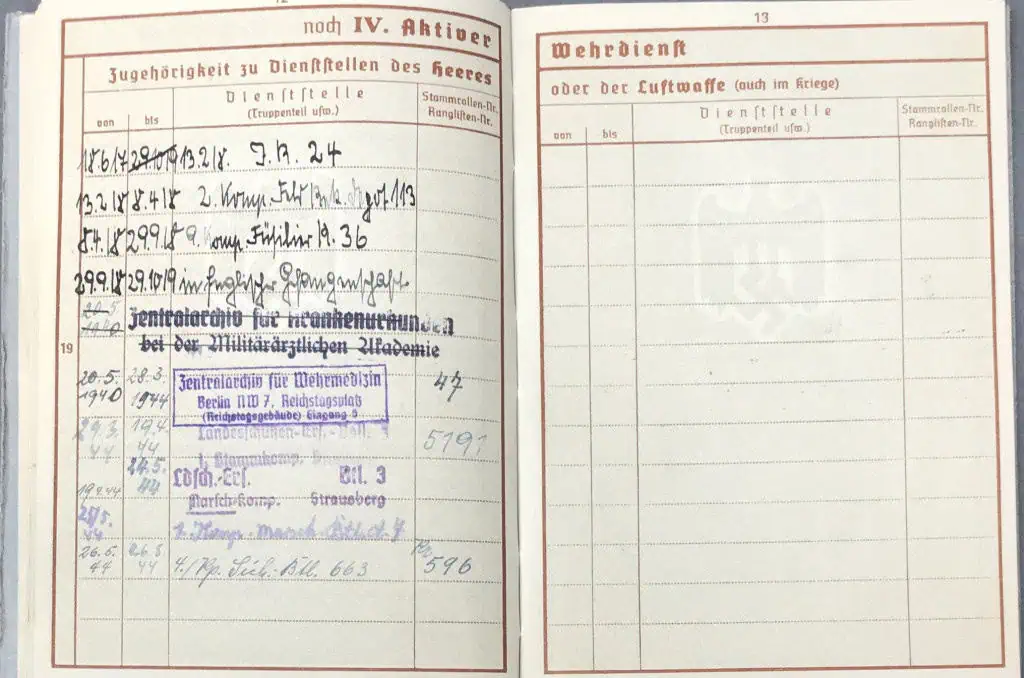 noch IV. Aktiver
Zugehörigkeit zu Dienststellen des Heeres
von bis Dienststelle (Truppenteil usw.) Stammrollen-Nr. Ranglisten-Nr.
18.6.17 29.10.19 13.2.18. J.R. 24
13.2.18 8.4.18 2. Komp. Feld 113
8.4.18 29.9.18 9. Komp. Füsilier R. 36
29.9.18 29.10.19 in Englischer Gefangenschaft
20.5 1940 Zentralarchiv für Krankenurkunden
bei der Militärärztlichen Akademie
19
20.5. 1940 28.3. 1944 47
Zentralarchiv für Wehrmedizin
Berlin NW 7, Reichstagsplatz
(Reichstagsgebäude) Eingang 5
29.3. 44 19.4. 44 Landesschützen-Ers.-Batl. 3 5191
1. Stammkomp.
19.4.44 24.5. 44 Ldsch.-Ers. Btl. 3
Marsch-Komp. Strausberg
25/5. 44 1. Komp. Marsch
26.5. 44 26.8. 44 4./Kp. Sich. Btl. 663 596
13
Wehrdienst
oder der Luftwaffe (auch im Kriege)
von bis Dienststelle (Truppenteil usw.) Stammrollen-Nr. Ranglisten-Nr.